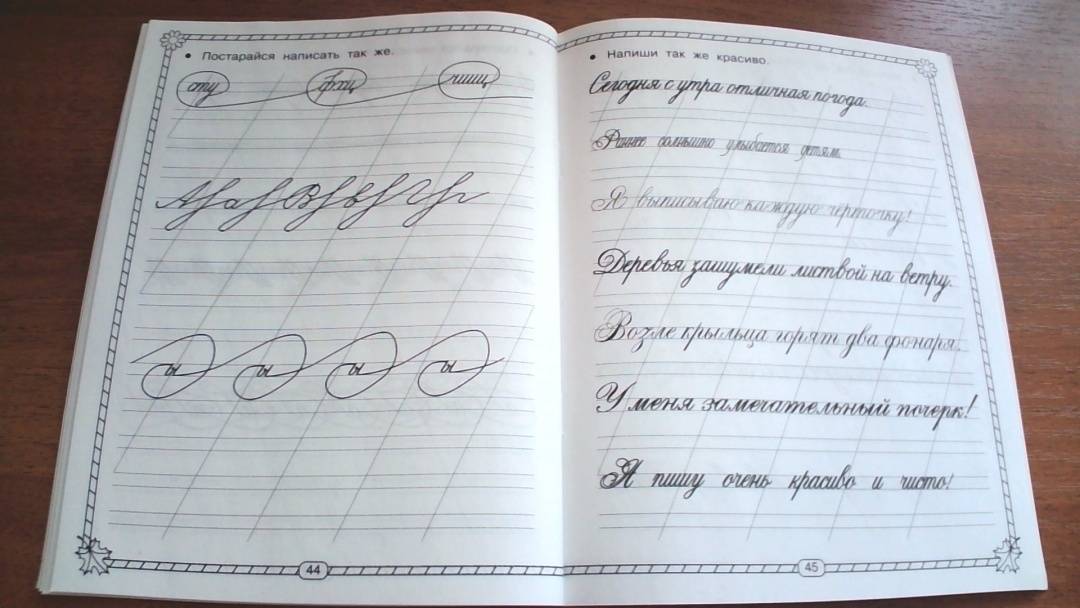 • Постарайся написать так же.
сту фхц чшщ
А а В в Ч ч
ы ы ы ы
44
• Напиши так же красиво.
Сегодня с утра отличная погода.
Раннее солнышко улыбается детям.
Я выписываю каждую черточку!
Деревья зашумели листвой на ветру.
Возле крыльца горят два фонаря.
У меня замечательный почерк!
Я пишу очень красиво и чисто!
45